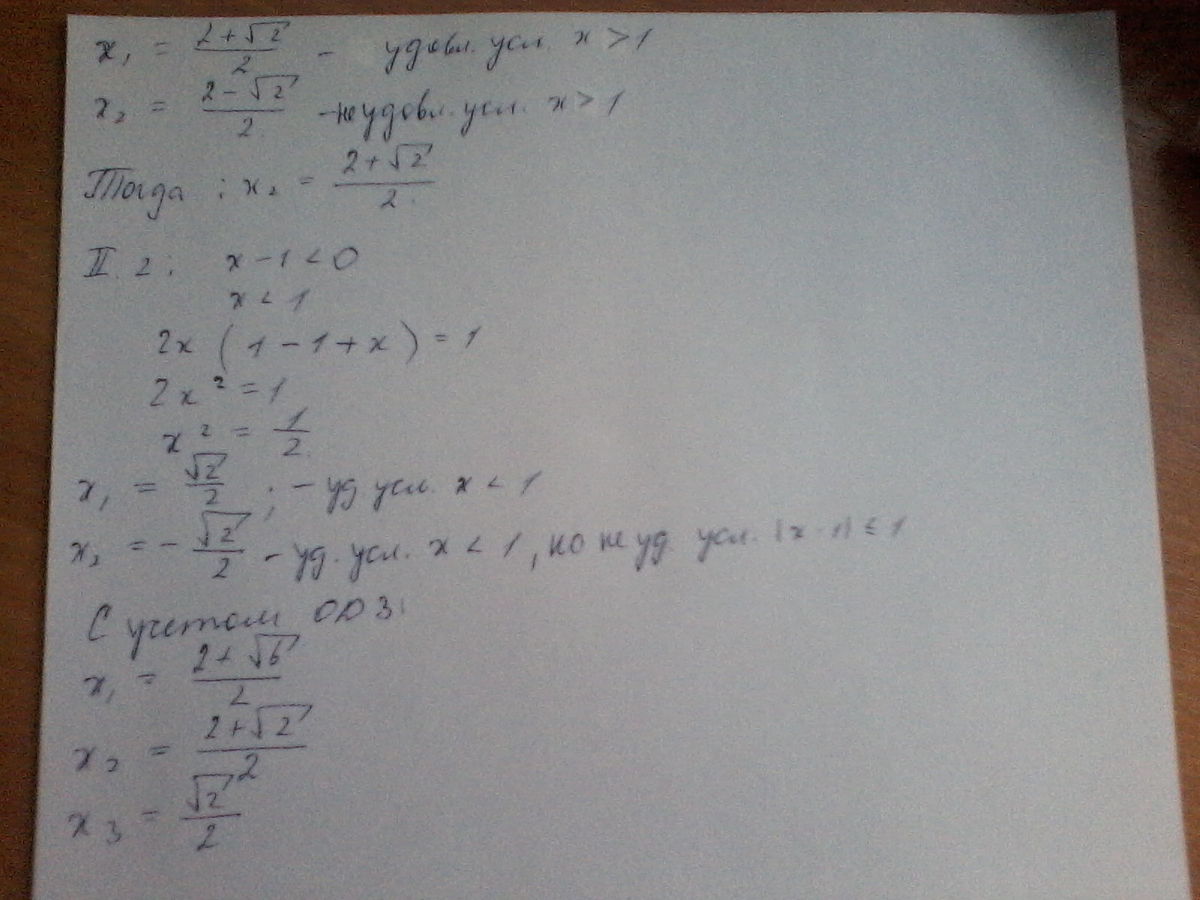 x₁ = (2+√2)/2 - удовл. усл. x > 1
x₂ = (2-√2)/2 - не удовл. усл. x > 1
Тогда : x₂ = (2+√2)/2
II. 2: x - 1 < 0
x < 1
2x (1 - 1 + x) = 1
2x² = 1
x² = 1/2
x₁ = √2/2 ; - уд усл. x < 1
x₂ = - √2/2 - уд. усл. x < 1, но не уд. усл. |x-1| ≤ 1
С учетом ОДЗ:
x₁ = (2+√6)/2
x₂ = (2+√2)/2
x₃ = √2/2